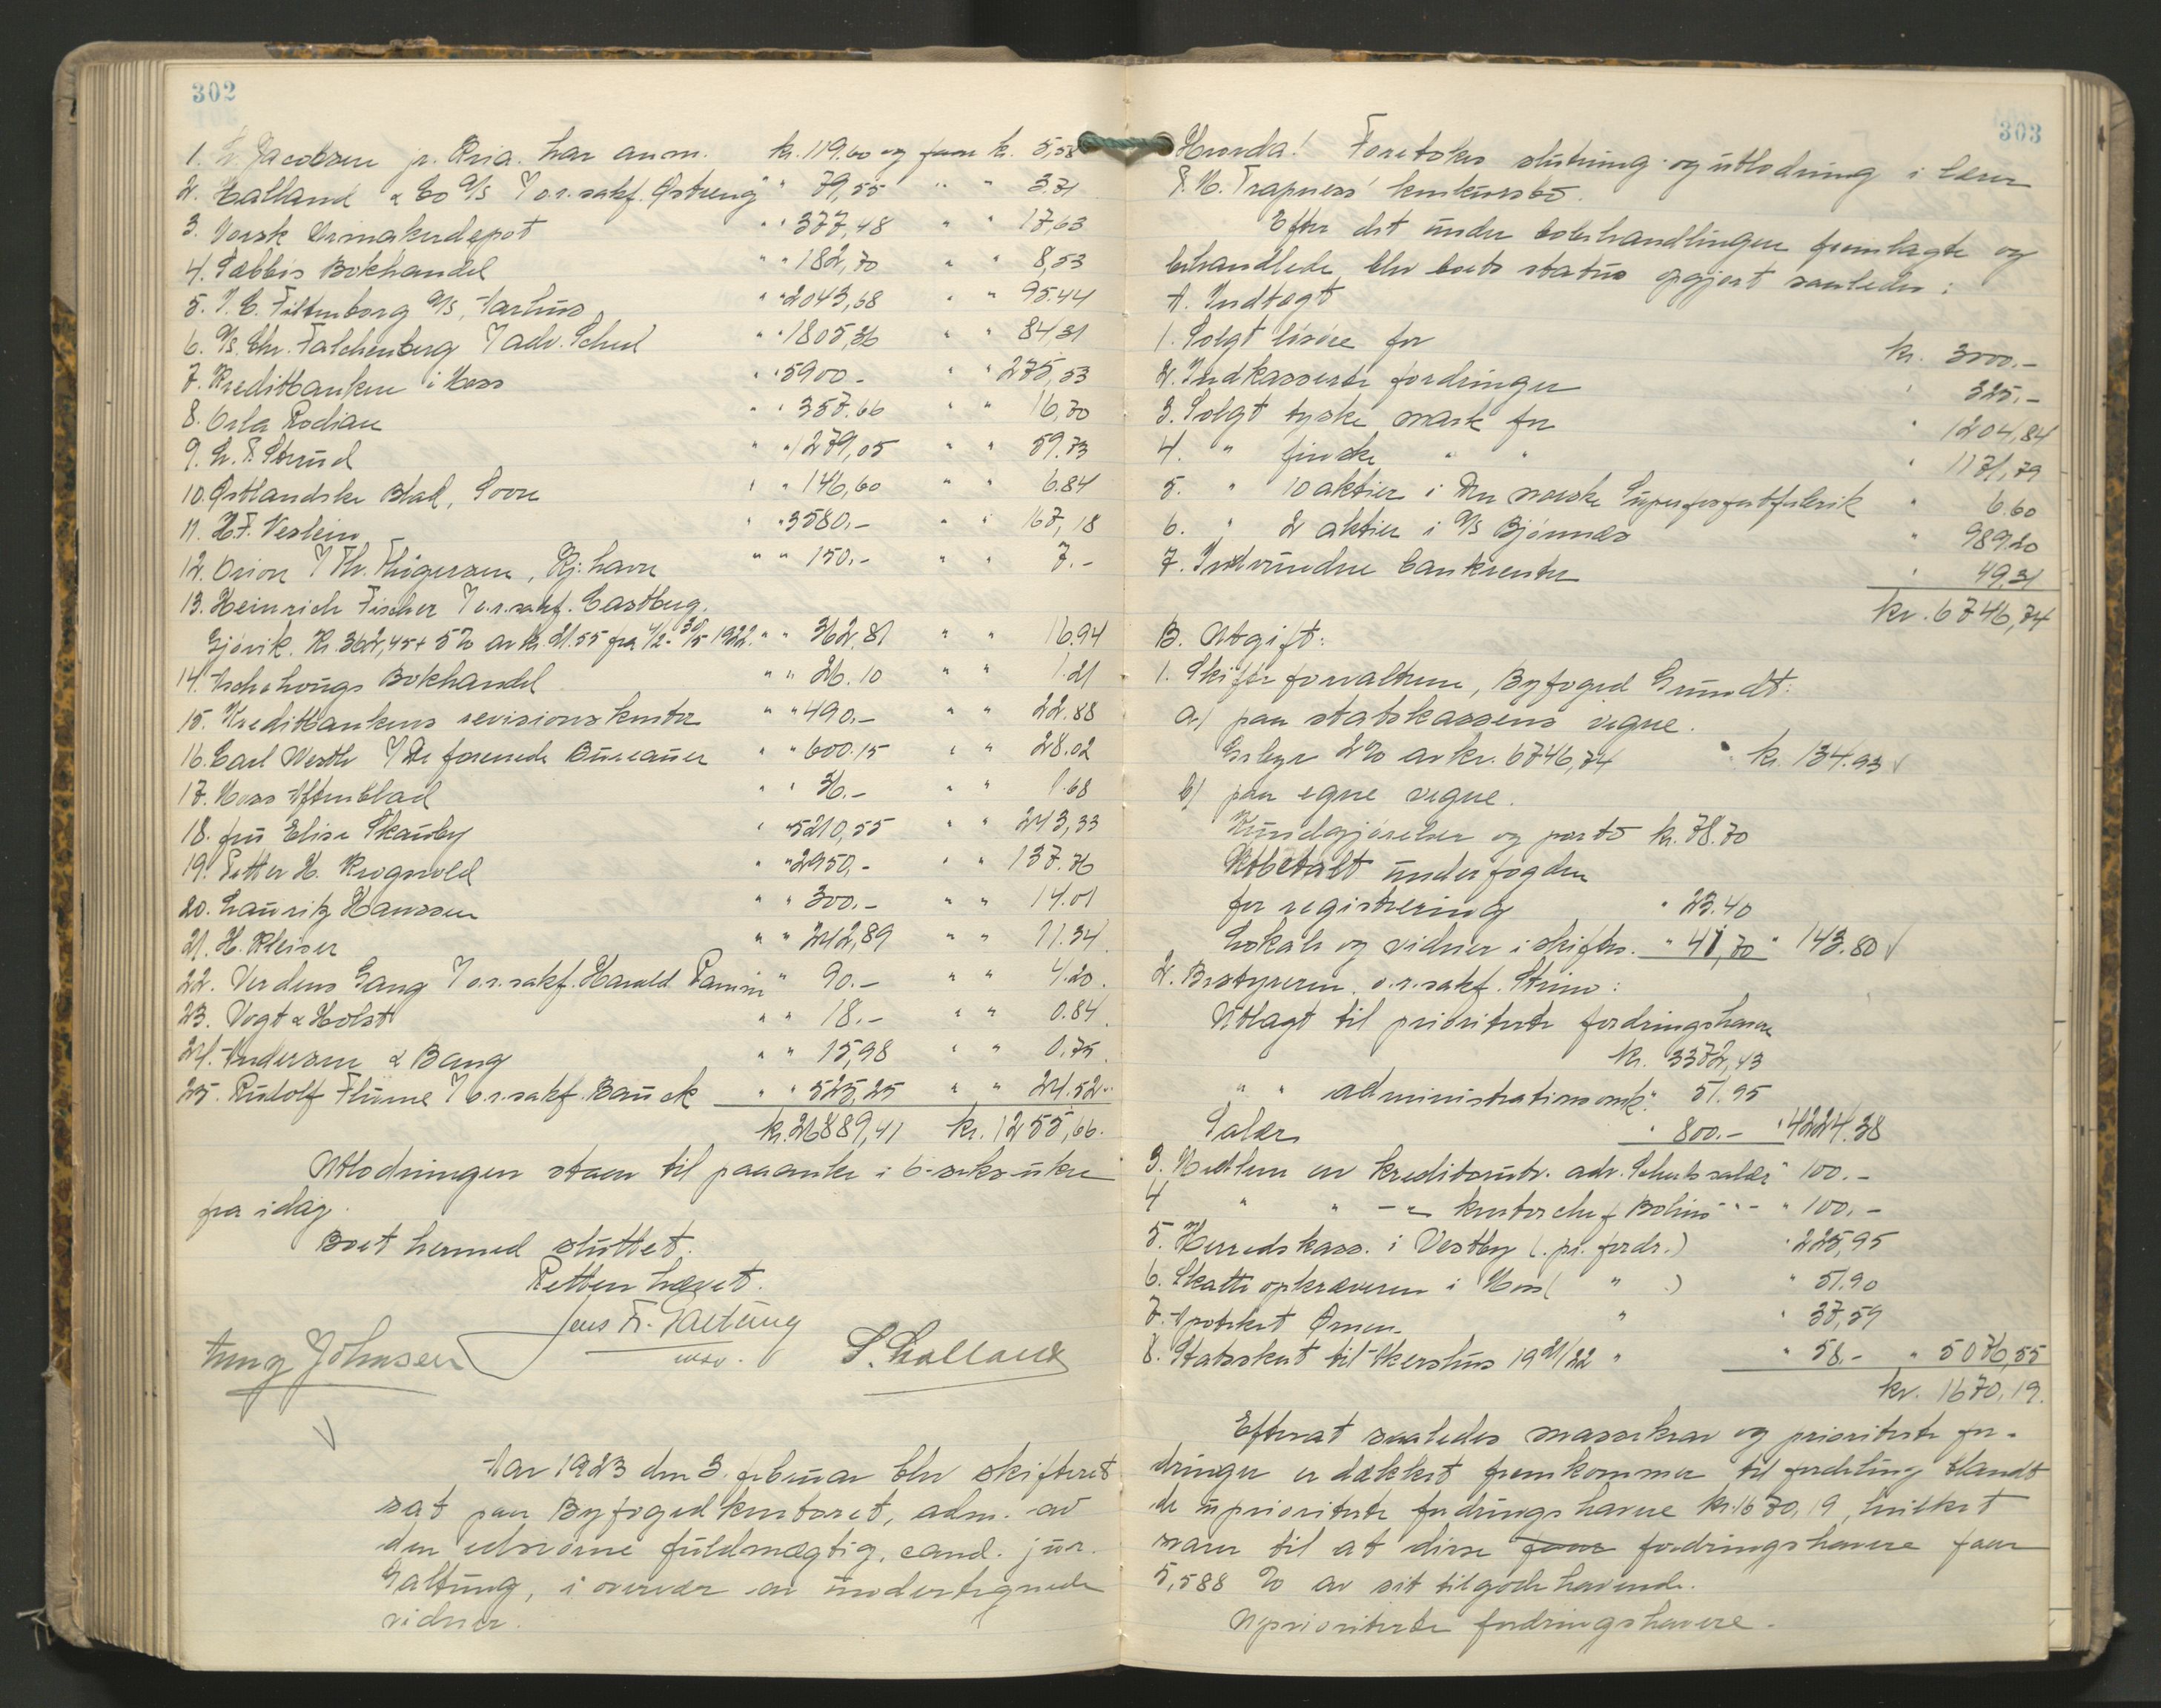 302
1. L. Jacobsen jr. Kria. har anm. kr. 119.60 og faar k. 5,58
2. Halland & Co A/S v/ o.r.sakf. Østreng " " 79,55 " " 3.71
3. Norsk Urmakerdepot " " 377,48 " " 17,63
4. Sæbbis Bokhandel " " 182,70 " " 8,53
5. I. C. Filtenborg A/S, Aarhus " " 2043,68 " " 95.44
6. A/S. Chr. Falchenberg v/ adv. Schul " " 1805,36 " " 84,31
7. Kreditbanken i Moss " " 5900.- " " 275,53
8. Orla Rodian " " 357.66 " " 16,70
9. L. F. Strud " " 1279,05 " " 59.73
10. Østlandske Blad, Soon " " 146,60 " " 6.84
11. H. F. Neslein " " 3580.- " " 167,18
12. Orion v/ Th. Thigersen, Kj.havn " " 150.- " " 7.-
13. Heinrich Fischer v/ o.r.sakf. Castberg.
Gjøvik. Kr. 362,45 + 5% av kr. 21.55 fra 4/2 - 30/5 1922. " " 362,81 " " 16.94
14. Aschehougs Bokhandel " " 26.10 " " 1.21
15. Kreditbankens revisionskontor " " 490.- " " 22.88
16. Carl Westh v/ De forenede Bureauer " " 600.15 " " 28.02
17. Moss Aftenblad " " 36.- " " 1.68
18. fru Elise Skauby " " 5210,55 " " 243,33
19. Petter H. Rognvold " " 2950,- " " 137.76
20. Lauritz Hanssen " " 300.- " " 14.01
21. H. Kleiser " " 242,89 " " 11.34
22. Verdens Gang v/ o.r.sakf. Harald Ramm " 90.- " " 4.20.
23. Vogt & Holst " " 18.- " " 0.84.
24. Andersen & Bang " " 15,98 " " 0.75.
25. Rudolf Flume v/ o.r.sakf. Bauck " " 525,25 " " 24.52
kr. 26889,41 kr. 1255,66.
Utlodningen staar til paaanke i 6-seks-uker
fra idag.
Boet hermed sluttet.
Retten hævet.
Jens Fr. Galtung
Johnsen
S. Lolland
Aar 1923 den 3. februar blev skifteret
sat paa Byfogedkontoret, adm. av
den edsvorne fuldmægtig, cand. jur.
Galtung, i overvær av undertegnede
vidner.
303
Hvorda! Foretokes slutning og utlodning i
F. H. Trapness' konkursbo.
Efter det under bobehandlingen fremlagte og
behandlede blev boets status opgjort saaledes:
A. Indtægt
1. Solgt løsøre for kr. 3000.-
2. Indkasserte fordringer " 325.-
3. Solgt tyske mark for " 1204,84
4. " finske " " " 1171,79
5. " 10 aktier i Den norske Superfosfatfabrik " 6.60
6. " 2 aktier i A/S Bjønnes " 989.20
7. Indvundne bankrenter " 49,31
kr. 6746,74
B. Utgift:
1. Skifteforvalteren, Byfoged Grundt:
a) paa statskassens vegne.
Gebyr 2% av kr. 6746,74 kr. 134.93
b) paa egne vegne.
Kundgjørelser og porto kr. 78.70
Utbetalt underfogden
for registrering " 23.40
Lokale og vidner i skifter. " 41,70 " 143.80
2. Bestyreren o.r.sakf. Strøm:
Utlagt til prioriterte fordringshavere
kr. 3372,43
" " administrationsomk. " 51.95
Salær " 800.- " 4224.38
3. Medlem av kreditorutv. adv. Schuls salær " 100.-
4 " " -"- kontorchef Bohins " - " 100.-
5. Herredskass. i Vestby (pr. fordr.) " 225,95
6. Skatteopkræveren i Moss ( " ) " 51.90
7. Apoteket Ørnen " " 37,59
8. Statsskat til Akershus 1921/22 " " 58.- " 5076,55
kr. 1670.19.
Efterat saaledes massekrav og prioriterte for-
dringer er dækket fremkommer til fordeling blandt
de uprioriterte fordringshavere kr. 1670,19, hvilket
svarer til at disse faar fordringshavere faar
5,588 % av sit tilgodehavende.
Uprioriterte fordringshavere.